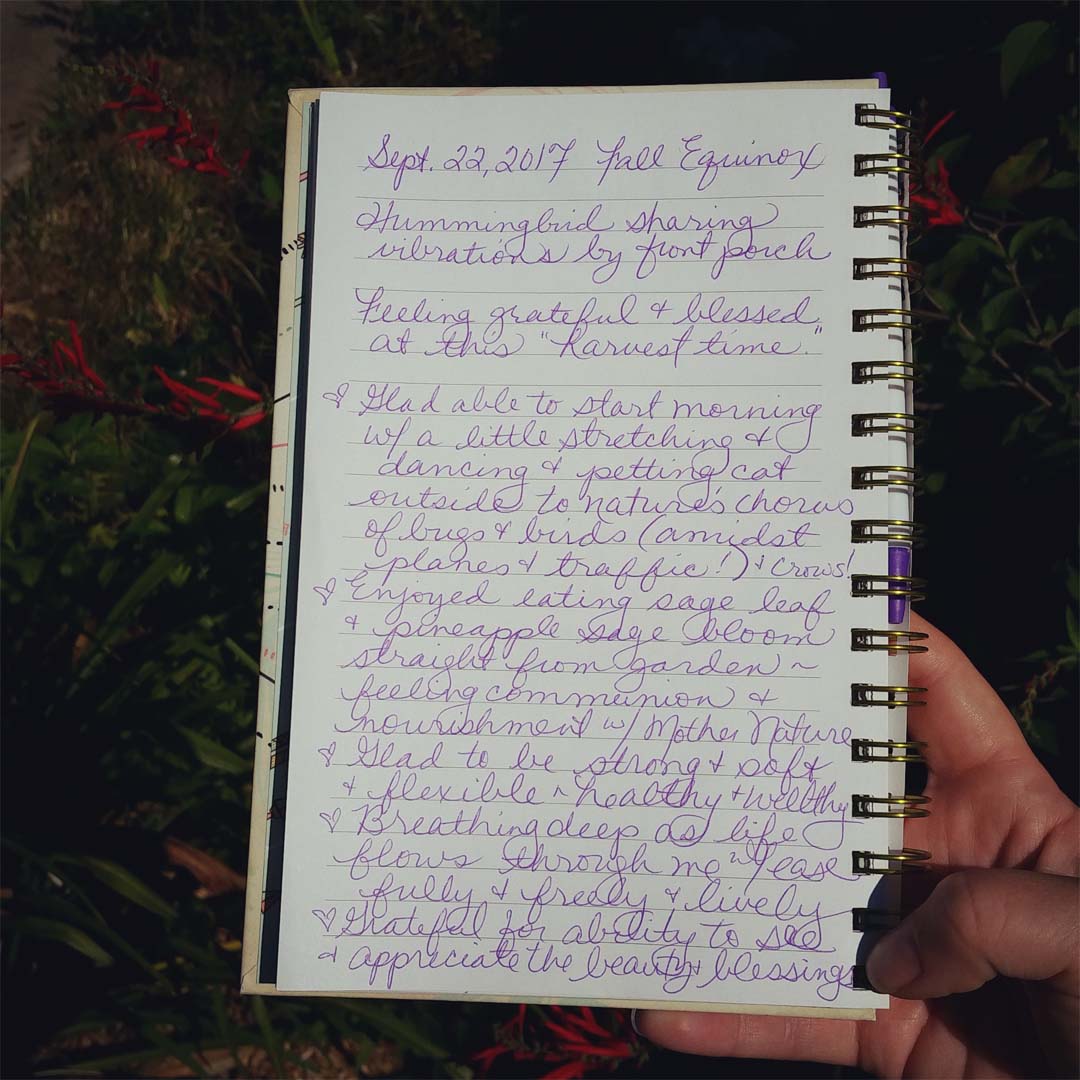 Sept. 22, 2017 Fall Equinox
Hummingbird sharing
vibrations by front porch
Feeling grateful & blessed
at this "harvest time."
♡ Glad able to start morning
w/ a little stretching &
dancing & petting cat
outside to nature's chorus
of bugs & birds (amidst
planes & traffic!) & crows!
♡ Enjoyed eating sage leaf
& pineapple sage bloom
straight from garden ~
feeling communion &
nourishment w/ Mother Nature
♡ Glad to be strong & soft
& flexible ~ healthy & wellthy
♡ Breathing deep as life
flows through me ~ ease
fully & freely & lively
♡ Grateful for ability to see
& appreciate the beauty & blessings